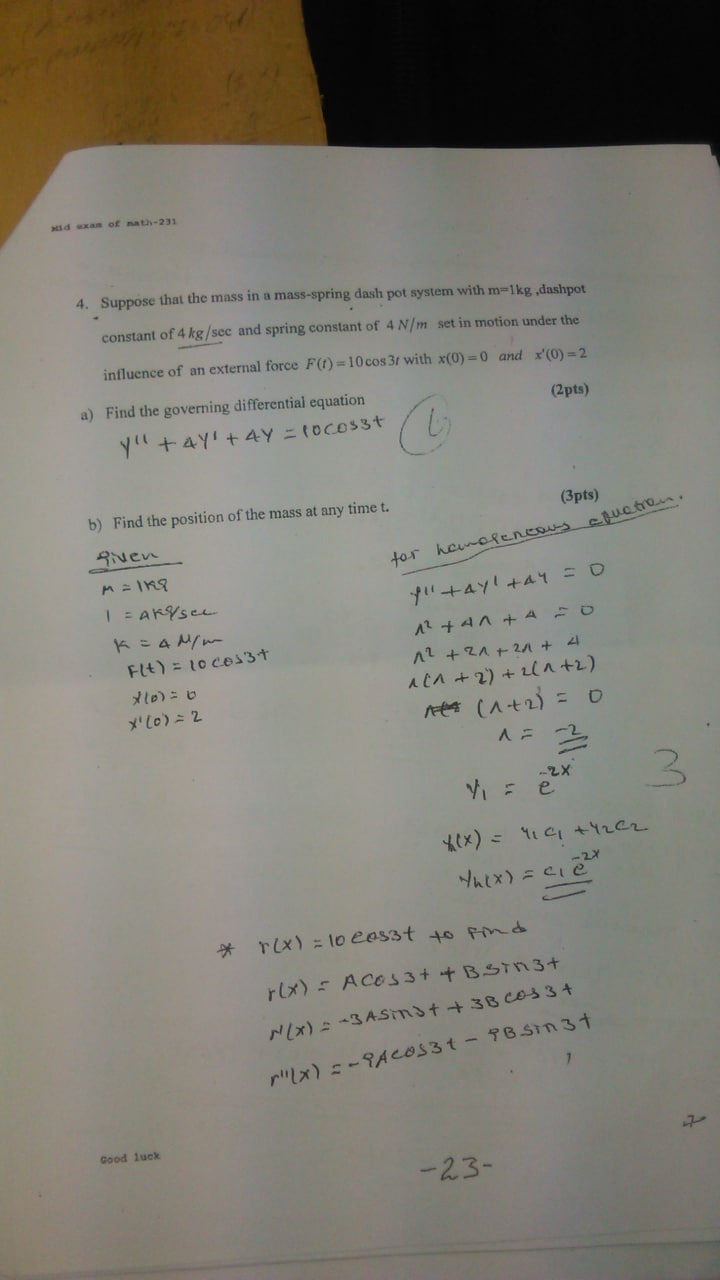 Mid exam of math-231
4. Suppose that the mass in a mass-spring dash pot system with m=1kg ,dashpot
constant of 4 kg/sec and spring constant of 4 N/m set in motion under the
influence of an external force F(t) = 10 cos 3t with x(0) = 0 and x'(0) = 2
a) Find the governing differential equation (2pts)
y'' + 4y' + 4y = 10cos3t
b) Find the position of the mass at any time t. (3pts)
given
m = 1kg
= 4kg/sec
k = 4 N/m
F(t) = 10cos3t
x(0) = 0
x'(0) = 2
for homogeneous equation.
y'' + 4y' + 4y = 0
λ² + 4λ + 4 = 0
λ² + 2λ + 2λ + 4
λ(λ + 2) + 2(λ+2)
(λ+2) = 0
λ = -2
y₁ = e^-2x
3
yh(x) = y₁c₁ + y₂c₂
yh(x) = c₁e^-2x
* r(x) = 10cos3t to find
r(x) = Acos3t + Bsin3t
r'(x) = -3Asin3t + 3Bcos3t
r''(x) = -9Acos3t - 9Bsin3t
Good luck
-23-